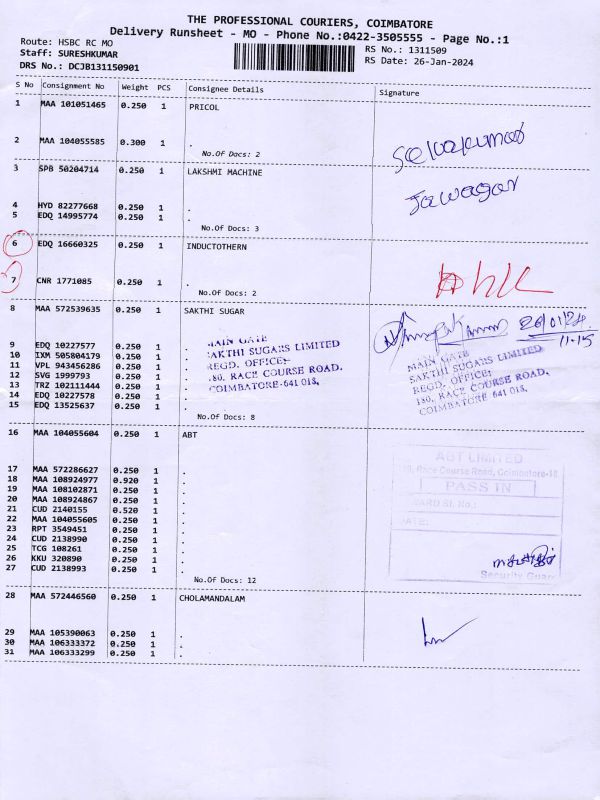 THE PROFESSIONAL COURIERS, COIMBATORE
Delivery Runsheet - MO - Phone No.:0422-3505555 - Page No.:1
Route: HSBC RC MO
Staff: SURESHKUMAR
DRS No.: DCJB131150901
RS No.: 1311509
RS Date: 26-Jan-2024
S No Consignment No Weight PCS Consignee Details Signature
1 MAA 101051465 0.250 1 PRICOL
2 MAA 104055585 0.300 1 .
No.Of Docs: 2
Selvakumar
3 SPB 50204714 0.250 1 LAKSHMI MACHINE
Jawagar
4 HYD 82277668 0.250 1 .
5 EDQ 14995774 0.250 1 .
No.Of Docs: 3
6 EDQ 16660325 0.250 1 INDUCTOTHERN
7 CNR 1771085 0.250 1 .
No.Of Docs: 2
8 MAA 572539635 0.250 1 SAKTHI SUGAR
26/01/24
11.15
9 EDQ 10227577 0.250 1 .
10 IXM 505804179 0.250 1 .
11 VPL 943456286 0.250 1 .
12 SVG 1999793 0.250 1 .
13 TRZ 102111444 0.250 1 .
14 EDQ 10227578 0.250 1 .
15 EDQ 13525637 0.250 1 .
No.Of Docs: 8
MAIN GATE
SAKTHI SUGARS LIMITED
REGD. OFFICE:
180, RACE COURSE ROAD,
COIMBATORE-641 018,
MAIN GATE
SAKTHI SUGARS LIMITED
REGD. OFFICE:
180, RACE COURSE ROAD,
COIMBATORE-641 018,
16 MAA 104055604 0.250 1 ABT
17 MAA 572286627 0.250 1 .
18 MAA 108924977 0.920 1 .
19 MAA 108102871 0.250 1 .
20 MAA 108924867 0.250 1 .
21 CUD 2140155 0.520 1 .
22 MAA 104055605 0.250 1 .
23 RPT 3549451 0.250 1 .
24 CUD 2138990 0.250 1 .
25 TCG 108261 0.250 1 .
26 KKU 320890 0.250 1 .
27 CUD 2138993 0.250 1 .
No.Of Docs: 12
ABT LIMITED
Race Course Road, Coimbatore-18
PASS IN
WARD SL No.:
DATE:
Security Guard
28 MAA 572446560 0.250 1 CHOLAMANDALAM
29 MAA 105390063 0.250 1 .
30 MAA 106333372 0.250 1 .
31 MAA 106333299 0.250 1 .